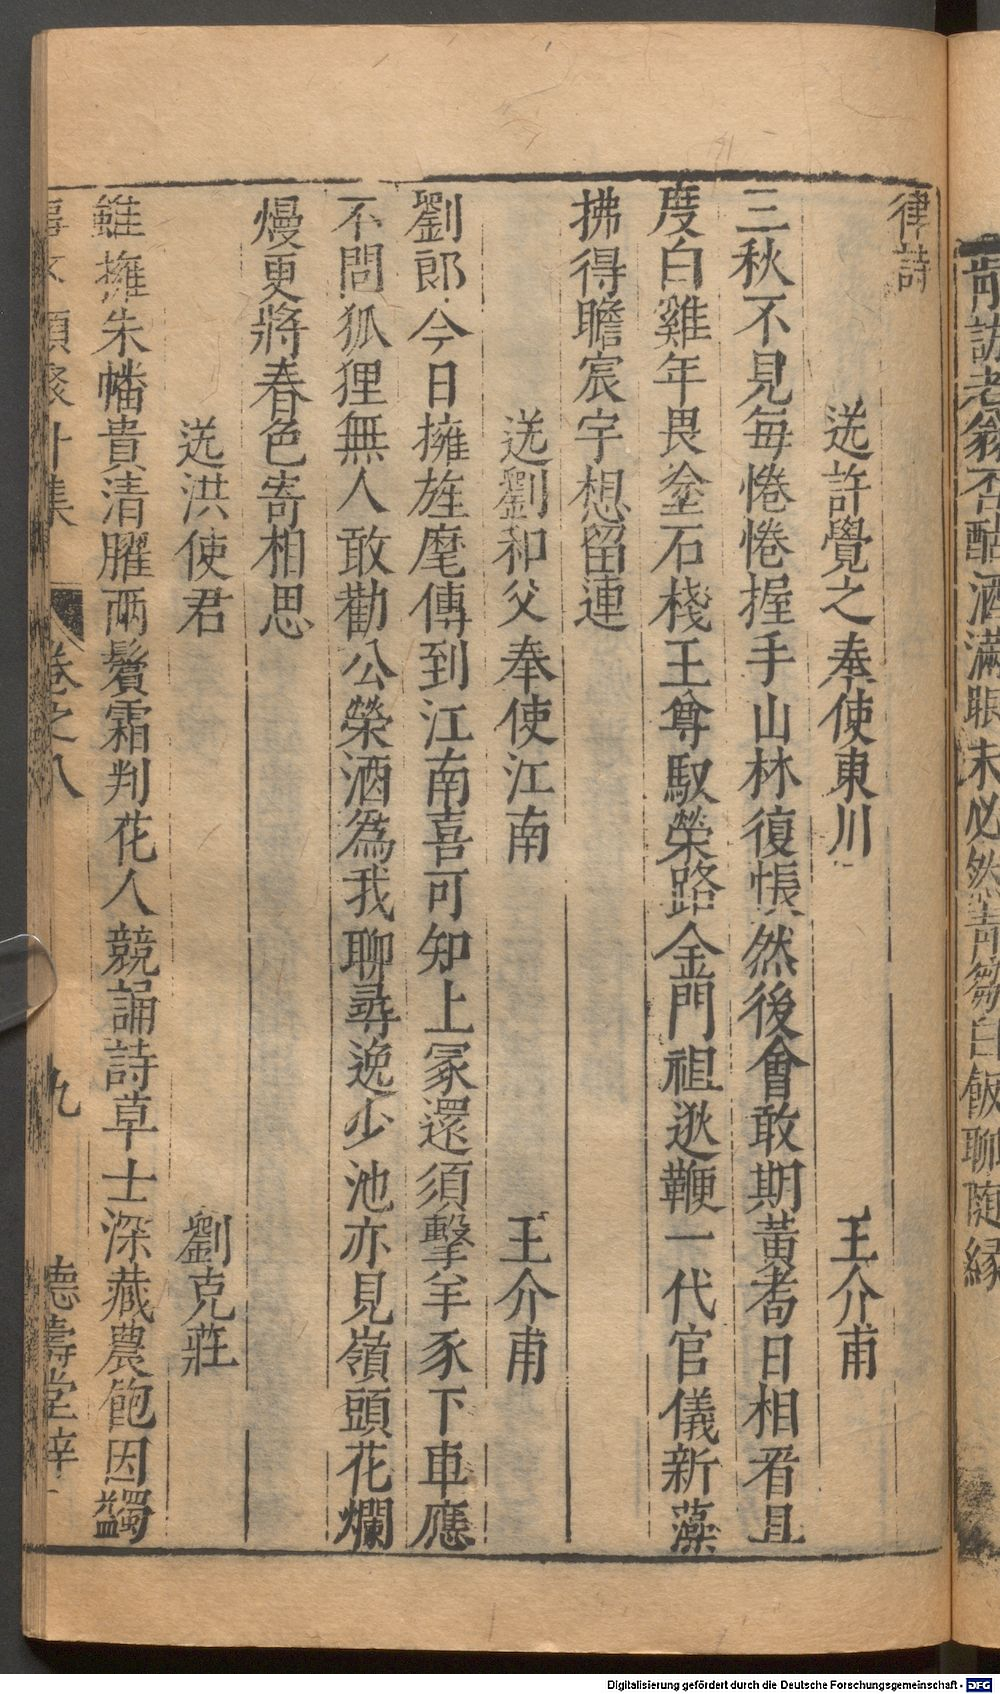 前訪老翁否酤酒滿賬未必然靑芻白飯聊隨縁
律詩
送許覺之奉使東川　王介甫
三秋不見每惓惓握手山林復悵然後會敢期黃耉日相看且
度白雞年畏塗石棧王尊馭榮路金門祖逖鞭一代官儀新藻
拂得瞻宸宇想留連
送劉和父奉使江南　王介甫
劉郎今日擁旌麾傳到江南喜可知上冢還須擊羊豕下車應
不問狐狸無人敢勸公榮酒爲我聊尋逸少池亦見嶺頭花爛
熳更將春色寄相思
送洪使君　劉克莊
雖擁朱幡貴清臞兩鬢霜判花人競誦詩草士深藏農飽因蠲
事文類聚 集 卷之八 九 德壽堂梓
Digitalisierung gefördert durch die Deutsche Forschungsgemeinschaft - DFG